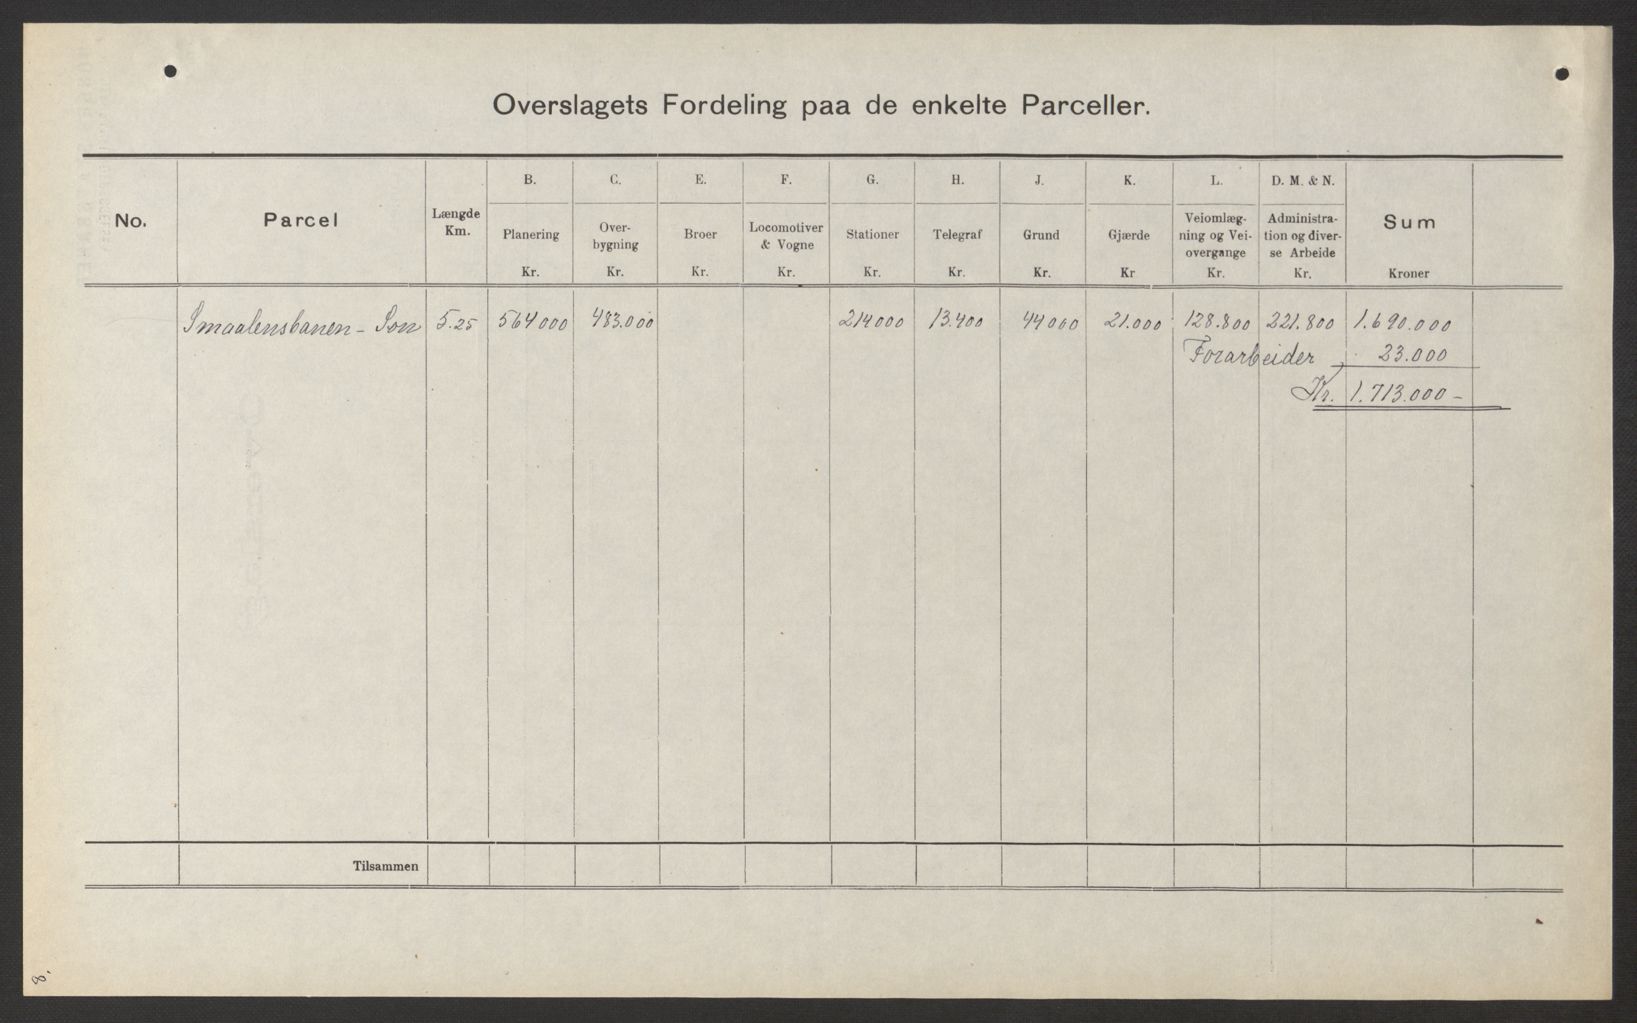 Overslagets Fordeling paa de enkelte Parceller.
No.
Parcel
Længde
Km.
B.
Planering
Kr.
C.
Over-
bygning
Kr.
E.
Broer
Kr.
F.
Locomotiver
& Vogne
Kr.
G.
Stationer
Kr.
H.
Telegraf
Kr.
J.
Grund
Kr.
K.
Gjærde
Kr
L.
Veiomlæg-
ning og Vei-
overgange
Kr.
D. M. & N.
Administra-
tion og diver-
se Arbeide
Kr.
Sum
Kroner
Smaalensbanen - Son 5.25 564000 483.000 214000 13.400 44000 21.000 128.800 221.800 1.690.000
Forarbeider 23.000
Kr. 1.713.000 -
Tilsammen
8.